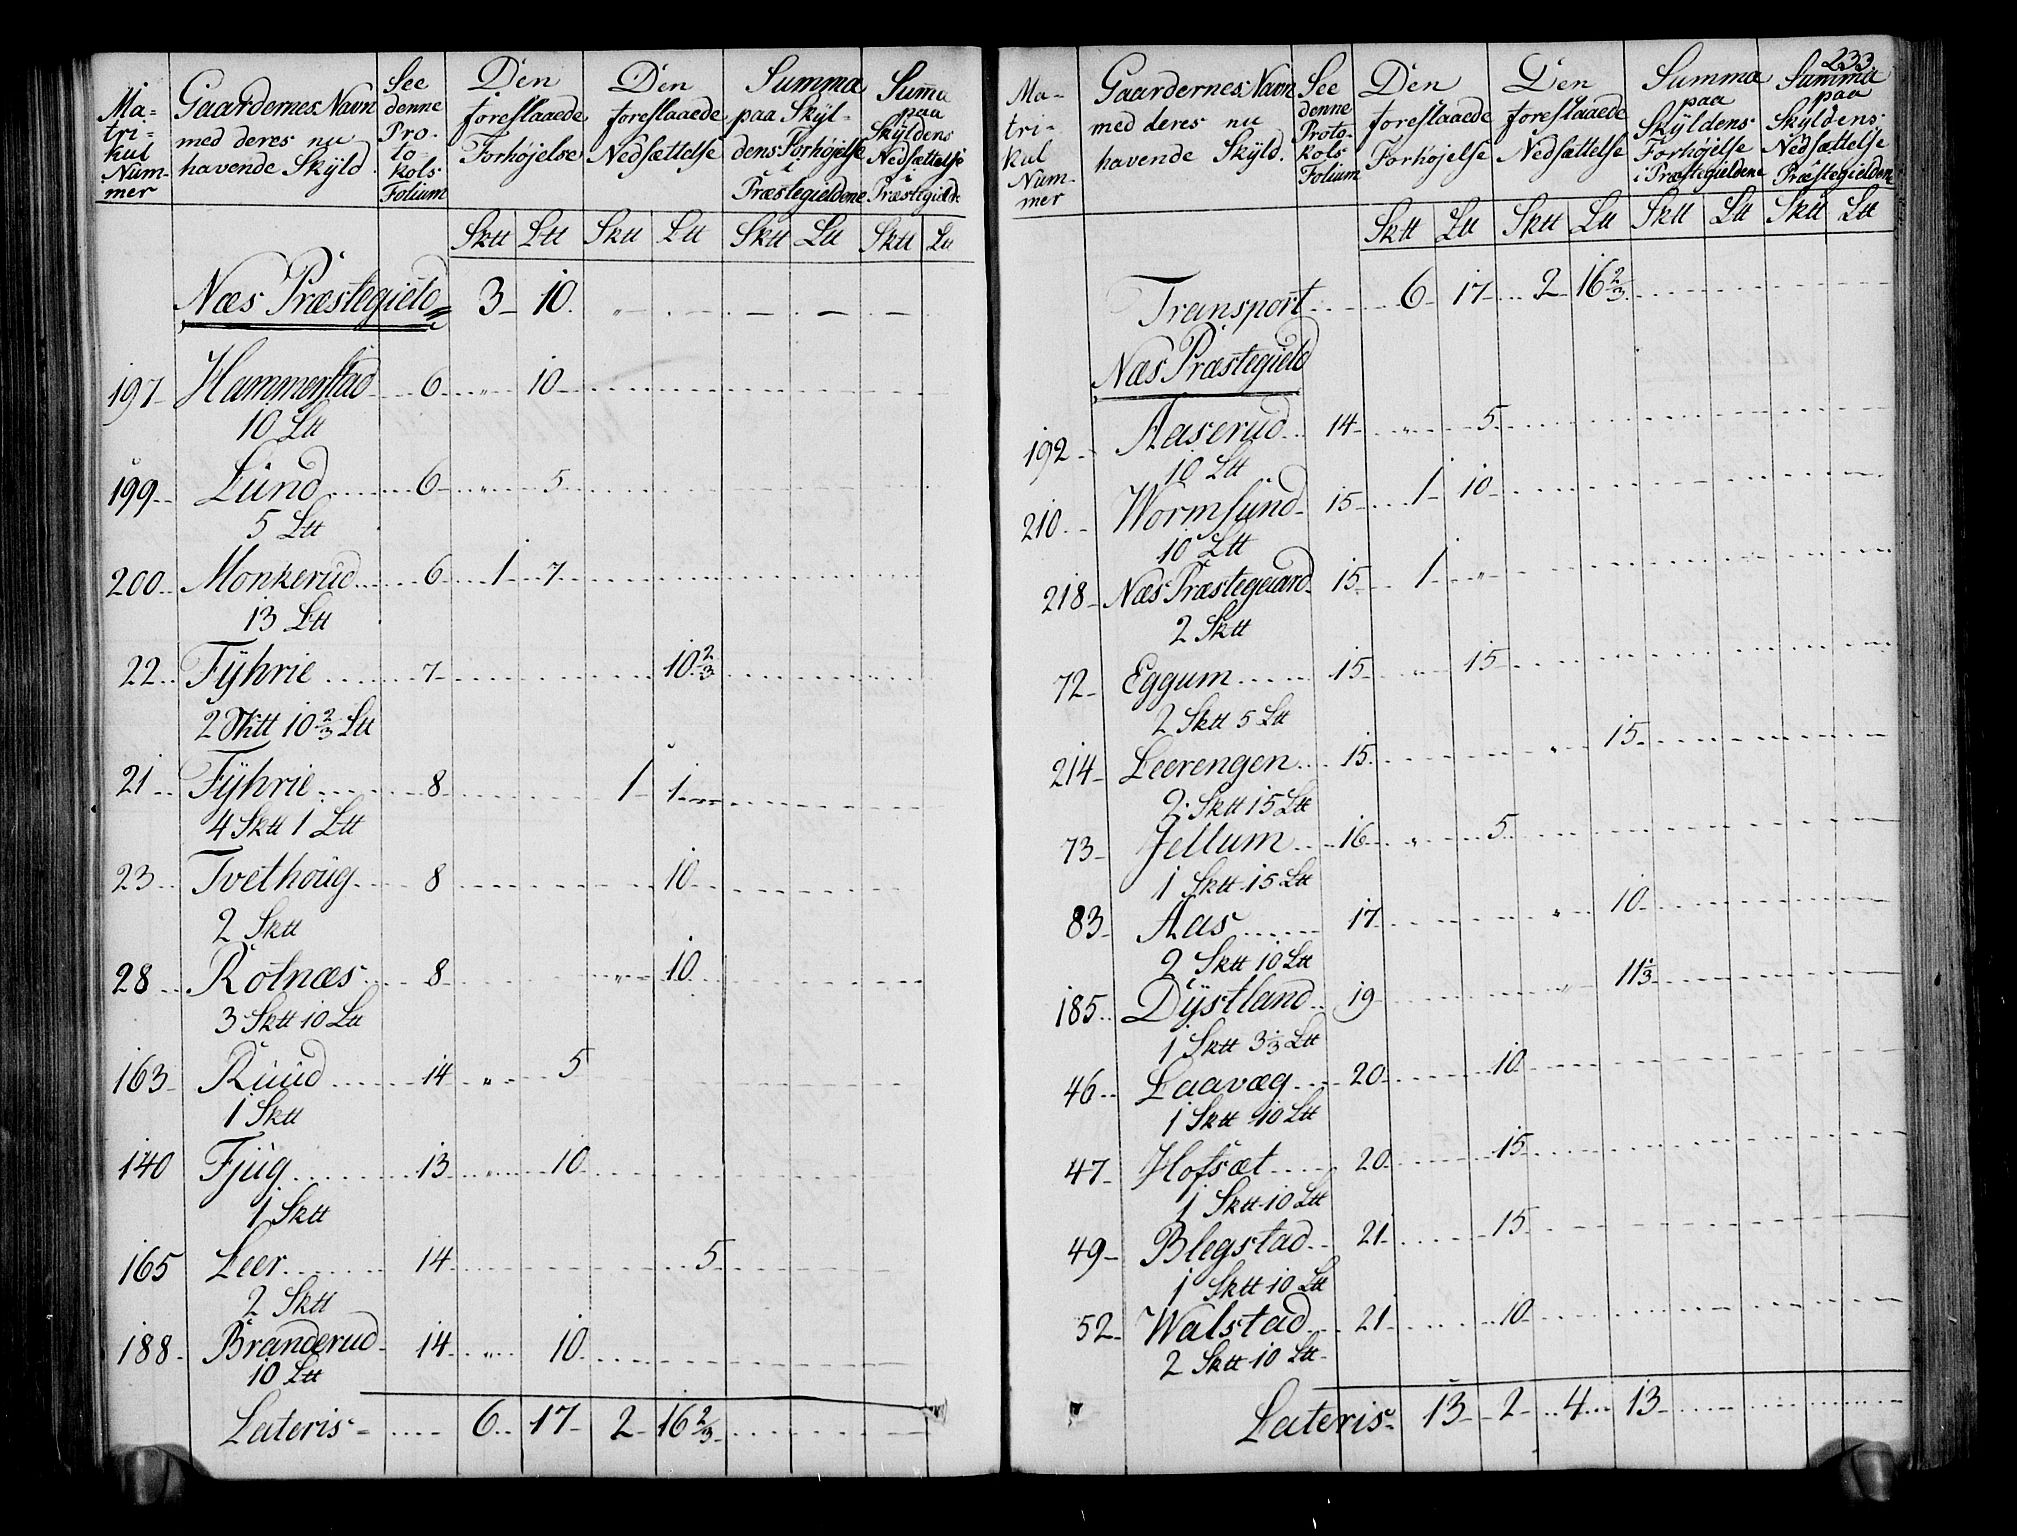 Ma-
tri-
kul
Num-
mer
Gaardernes Navn
med deres nu
havende Skyld
See
denne
Pro-
to-
kols
Folium
Den
foreslaaede
Forhøjelse
Den
foreslaaede
Nedsættelse
Summa
paa Skyl-
dens Forhøjelse
i
Præstegieldene
Summa
paa
Skyldens
Nedsættelse
i
Præstegield:
Sktt Ltt Sktt Ltt Sktt Ltt Sktt Ltt
Næs Præstegield 3 10 "
197 Hammerstad 6 " 10
10 Ltt
199 Lund 6 " 5
5 Ltt
200 Monkerud 6 1 7
13 Ltt
22 Fÿhrie 7 10 2/3
2 Sktt 10 2/3 Ltt
21 Fÿhrie 8 1 1
4 Sktt 1 Ltt
23 Tvethoug 8 10
2 Sktt
28 Rotnæs 8 " 10
3 Sktt 10 Ltt
163 Ruud 14 " 5
1 Sktt
140 Fjug 13 " 10
1 Sktt
165 Leer 14 5
2 Sktt
188 Branderud 14 " 10
10 Ltt
Lateris 6 17 2 16 2/3
233
Ma-
tri-
kul
Num-
mer
Gaardernes Navn
med deres nu
havende Skyld.
See
denne
Proto-
kols
Folium
Den
foreslaaede
Forhøjelse
Den
foreslaaede
Nedsættelse
Summa
paa
Skyldens
Forhøjelse
i Præstegieldene
Summa
paa
Skyldens
Nedsættelse
i
Præstegieldene
Sktt Ltt Sktt Ltt Sktt Ltt Sktt Ltt
Transport 6 17 2 16 2/3
Næs Præstegield
192 Aaserud 14 " 5
10 Ltt
210 Wormsund 15 1 10
10 Ltt
218 Næs Præstegaard 15 1 "
2 Sktt
72 Eggum 15 " 15
2 Sktt 5 Ltt
214 Leerengen 15 " 15
2 Sktt 15 Ltt
73 Jellum 16 " 5
1 Sktt 15 Ltt
83 Aas 17 " 10
2 Sktt 10 Ltt
185 Dÿstland 19 " 11 1/3
1 Sktt 3 1/3 Ltt
46 Laavæg 20 10
1 Sktt 10 Ltt
47 Hofsæt 20 15
1 Sktt 10 Ltt
49 Blegstad 21 15
1 Sktt 10 Ltt
52 Walstad 21 10
2 Sktt 10 Ltt
Lateris 13 2 4 13